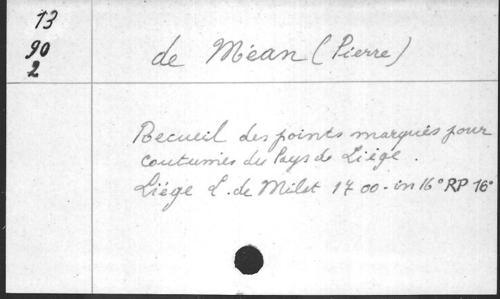 13
90
2
de Méan (Pierre)
Recueil des points marqués pour
coutumes du Pays de Liége.
Liége L. de Milst 1700 - in 16° RP 16°